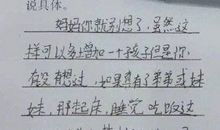 说具体。
妈妈你就别想了,虽然这
样可以多增加一个孩子但是你
有没有想过,如果真有了弟弟或妹
妹,那起床,睡觉吃饭这